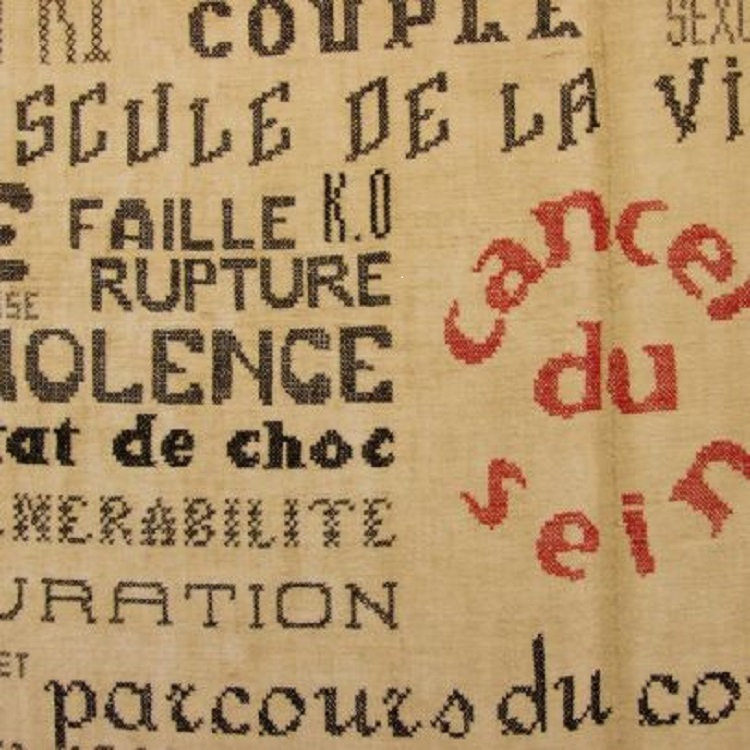 COUPLE
SCULE DE LA Vi
FAILLE K.O
RUPTURE
OLENCE
tat de choc
NERABILITE
URATION
ET
parcours du co
cancer
du
sein